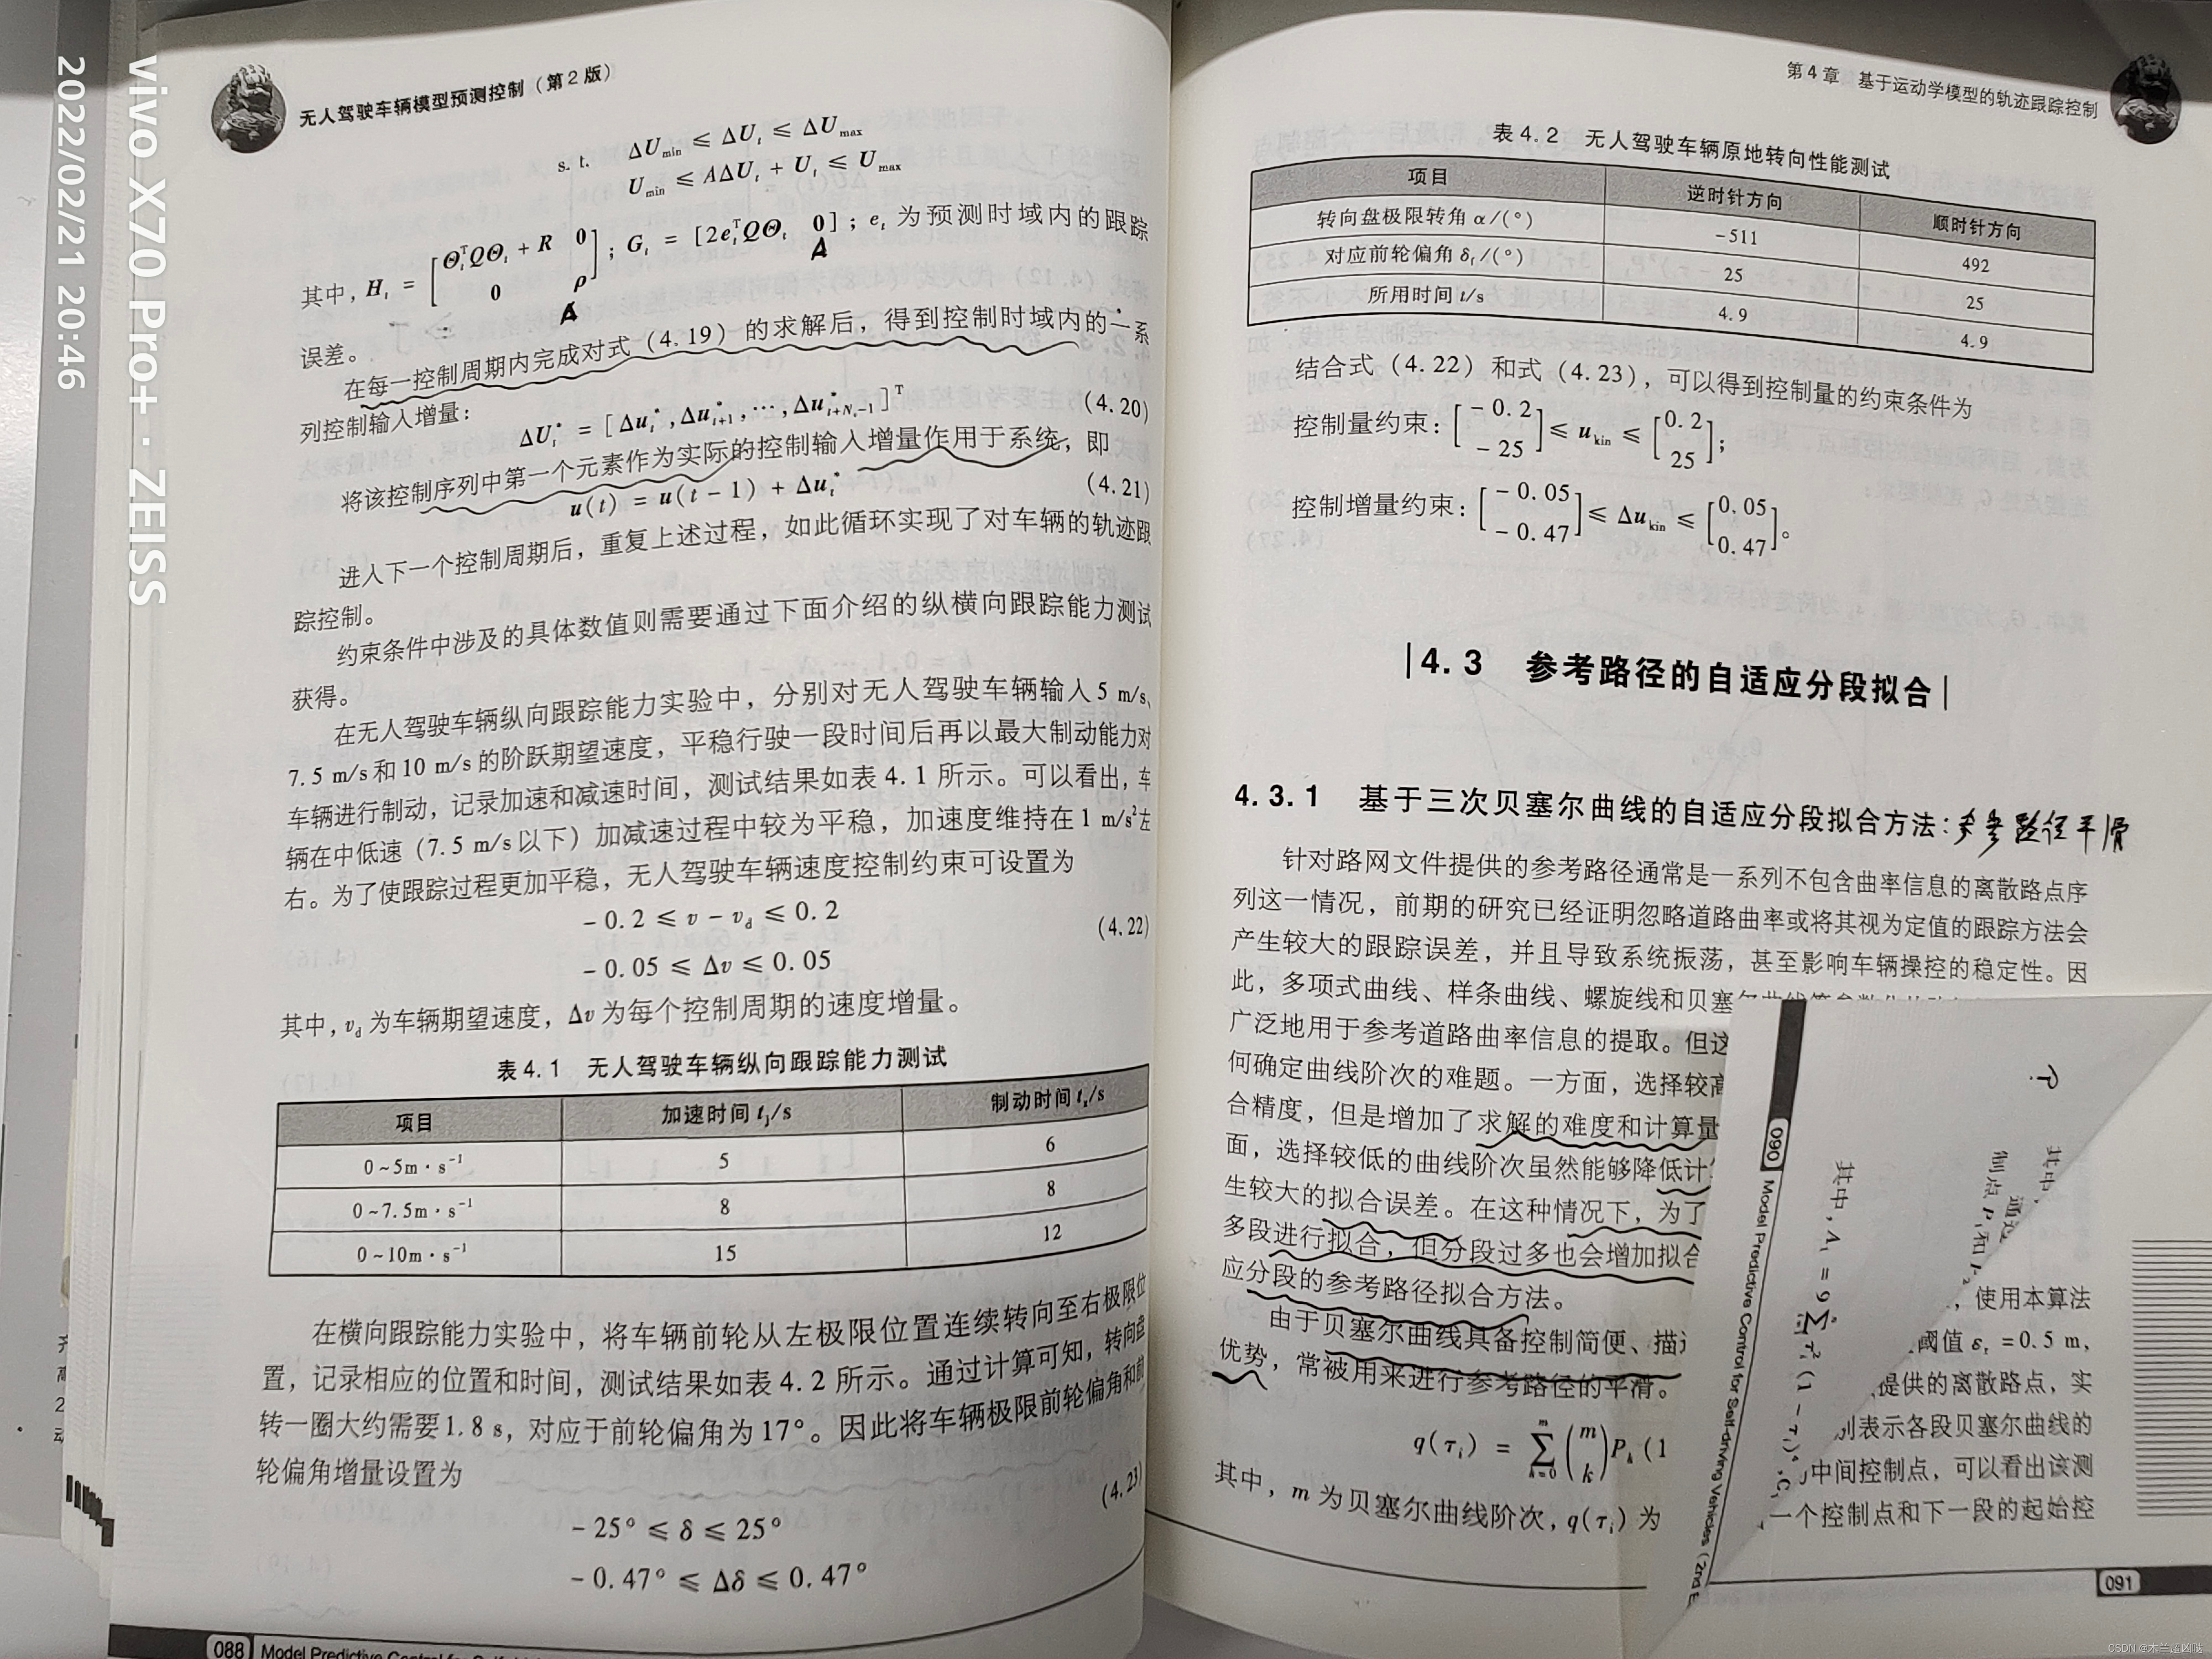 无人驾驶车辆模型预测控制（第2版）
s. t. ΔU_min ≤ ΔU_t ≤ ΔU_max
U_min ≤ AΔU_t + U_t ≤ U_max
其中，H_t = [Θ_t^T QΘ_t + R 0; 0 ρ]；G_t = [2e_t^T QΘ_t 0]；e_t 为预测时域内的跟踪
A
A
误差。
在每一控制周期内完成对式（4.19）的求解后，得到控制时域内的一系
列控制输入增量：
ΔU_t^* = [Δu_t^*, Δu_{t+1}^*, ⋯, Δu_{t+N_c-1}^*]^T (4.20)
将该控制序列中第一个元素作为实际的控制输入增量作用于系统，即
u(t) = u(t-1) + Δu_t^* (4.21)
进入下一个控制周期后，重复上述过程，如此循环实现了对车辆的轨迹跟
踪控制。
约束条件中涉及的具体数值则需要通过下面介绍的纵横向跟踪能力测试
获得。
在无人驾驶车辆纵向跟踪能力实验中，分别对无人驾驶车辆输入5 m/s、
7.5 m/s和10 m/s的阶跃期望速度，平稳行驶一段时间后再以最大制动能力对
车辆进行制动，记录加速和减速时间，测试结果如表4.1所示。可以看出，车
辆在中低速（7.5 m/s以下）加减速过程中较为平稳，加速度维持在1 m/s²左
右。为了使跟踪过程更加平稳，无人驾驶车辆速度控制约束可设置为
-0.2 ≤ v - v_d ≤ 0.2
(4.22)
-0.05 ≤ Δv ≤ 0.05
其中，v_d为车辆期望速度，Δv为每个控制周期的速度增量。
表4.1 无人驾驶车辆纵向跟踪能力测试
项目 加速时间 t_j/s 制动时间 t_z/s
0~5m·s⁻¹ 5 6
0~7.5m·s⁻¹ 8 8
0~10m·s⁻¹ 15 12
在横向跟踪能力实验中，将车辆前轮从左极限位置连续转向至右极限位
置，记录相应的位置和时间，测试结果如表4.2所示。通过计算可知，转向盘
转一圈大约需要1.8 s，对应于前轮偏角为17°。因此将车辆极限前轮偏角和前
轮偏角增量设置为
-25° ≤ δ ≤ 25°
(4.23)
-0.47° ≤ Δδ ≤ 0.47°
088 Model Predictive Control for
第4章 基于运动学模型的轨迹跟踪控制
表4.2 无人驾驶车辆原地转向性能测试
项目 逆时针方向 顺时针方向
转向盘极限转角 α/(°) -511 492
对应前轮偏角 δ_f/(°) 25 25
所用时间 t/s 4.9 4.9
结合式（4.22）和式（4.23），可以得到控制量的约束条件为
控制量约束：[-0.2; -25] ≤ u_kin ≤ [0.2; 25]；
控制增量约束：[-0.05; -0.47] ≤ Δu_kin ≤ [0.05; 0.47]。
4.3 参考路径的自适应分段拟合
4.3.1 基于三次贝塞尔曲线的自适应分段拟合方法：参考路径平滑
针对路网文件提供的参考路径通常是一系列不包含曲率信息的离散路点序
列这一情况，前期的研究已经证明忽略道路曲率或将其视为定值的跟踪方法会
产生较大的跟踪误差，并且导致系统振荡，甚至影响车辆操控的稳定性。因
此，多项式曲线、样条曲线、螺旋线和贝塞
广泛地用于参考道路曲率信息的提取。但这
何确定曲线阶次的难题。一方面，选择较高
合精度，但是增加了求解的难度和计算量
面，选择较低的曲线阶次虽然能够降低计
生较大的拟合误差。在这种情况下，为了
多段进行拟合，但分段过多也会增加拟合
应分段的参考路径拟合方法。
由于贝塞尔曲线具备控制简便、描
优势，常被用来进行参考路径的平滑。
q(τ_i) = Σ_{k=0}^{m} (m k) P_k (1
其中，m为贝塞尔曲线阶次，q(τ_i)为
090 Model Predictive Control for Self-driving Vehicles (2nd E
其中，A_1 = 9Σ τ_i²(1-τ_i)⁴，C_1
其中，
通过
制点 P_1和
，使用本算法
阈值 ε_t = 0.5 m，
提供的离散路点，实
别表示各段贝塞尔曲线的
中间控制点，可以看出该测
一个控制点和下一段的起始控
091
vivo X70 Pro+ · ZEISS
2022/02/21 20:46
CSDN @木兰超凶哒